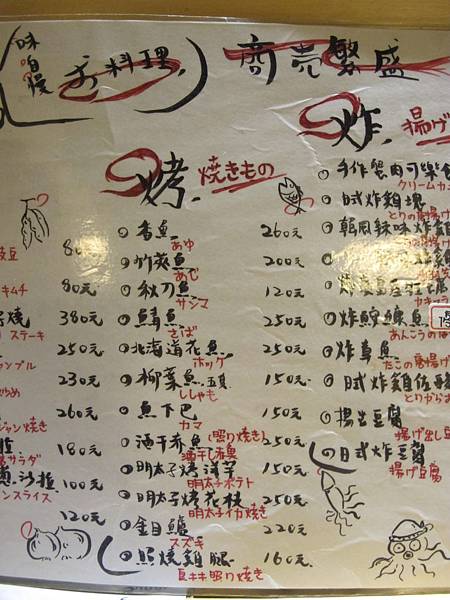 味自慢
お料理
商売繁盛
烤 焼きもの
香魚 260元
あゆ
竹莢魚 200元
あじ
秋刀魚 120元
サンマ
鯖魚 250元
さば
北海道花魚 250元
ホッケ
柳葉魚 150元
ししゃも
魚下巴 150元
カマ
酒干赤魚(照り焼き) 250元
酒干し赤魚
明太子烤洋芋 150元
明太子ポテト
明太子烤花枝 250元
明太子イカ焼き
金目鱸 220元
スズキ
照燒雞腿 160元
豆
80元
キムチ
80元
焼 380元
ステーキ
250元
230元
260元
ジャン焼き
180元
サラダ
沙拉 100元
ンスライス
120元
炸 揚げ
手作蟹肉可樂
クリームカ
日式炸雞塊
とりの唐揚げ
韓風辣味炸雞
炸鮟鱇魚
あんこうの
炸章魚
たこの唐揚げ
日式炸雞佐
とりから
揚出豆腐
揚げ出し豆
日式炸豆腐
揚げ豆腐